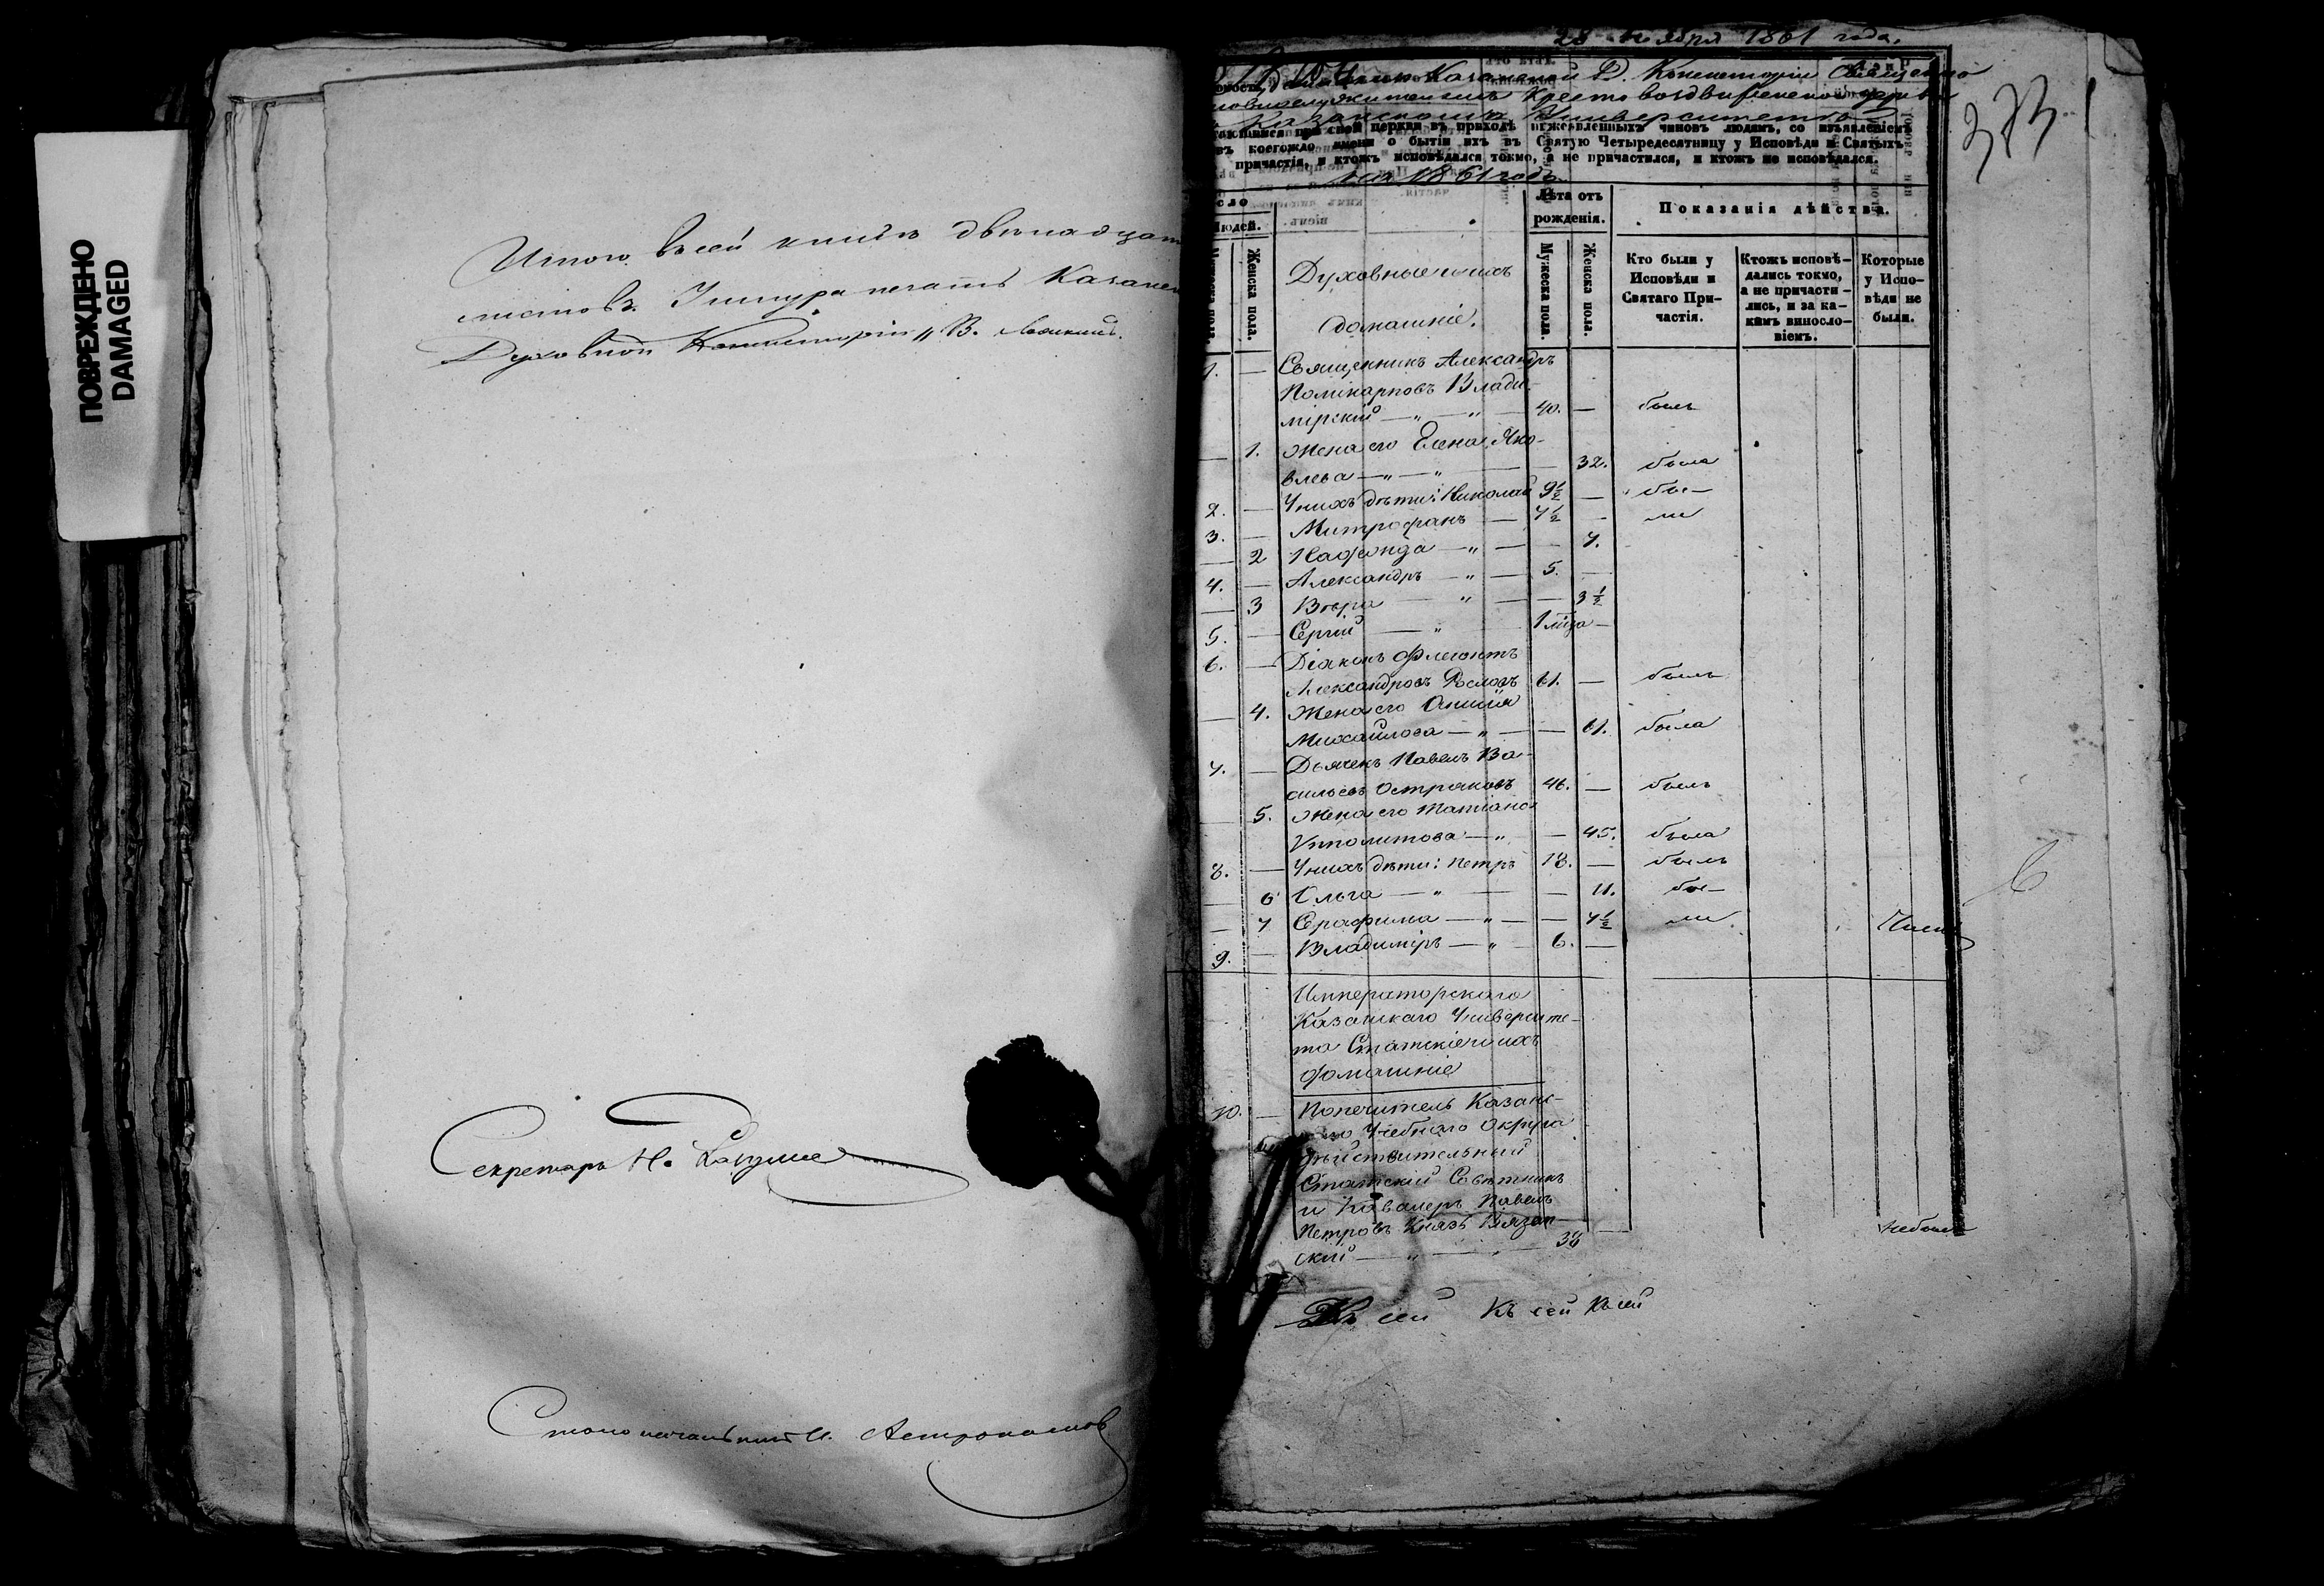 ПОВРЕЖДЕНО
DAMAGED
Итого въ сей книгѣ двѣнадцать
листовъ. У шнура печать Казанск
Духовной Консисторіи
Секретарь Н.
Столоначальникъ
28 ноября 1861 года.
373
Казанской Д. Консисторіи Священно
церковнослужителямъ Крестовоздвиженской церкви
Казанскомъ Университетѣ
при сей церкви въ приходѣ нижеявленныхъ чиновъ людямъ, со изъявленіемъ
въ коегождо имени о бытіи ихъ въ Святую Четыредесятницу у Исповѣди и Святыхъ
причастія, и ктожъ исповѣдался токмо, а не причастился, и ктожъ не исповѣдался.
1861 годъ
Людей.
Женска пола.
Духовные и ихъ
домашніе.
Лѣта отъ
рожденія.
Мужеска пола.
Женска пола.
Показанія дѣйства.
Кто были у
Исповѣди и
Святаго При-
частія.
Ктожъ исповѣ-
дались токмо,
а не причасти-
лись, и за ка-
кимъ виносло-
віемъ.
Которые
у Испо-
вѣди не
были.
1. — Священникъ Александръ
Поликарповъ Влади-
мірскій — „ — „ — 40. — былъ
— 1. Жена его Елена Яко-
влева — „ — „ — — 32. была
2. — У нихъ дѣти: Николай 9½ — бы-
3. — Митрофанъ — 7½ — ли
— 2 Надежда — „ — — 7.
4. — Александръ — „ — 5. —
— 3 Вѣра — „ — — 3½
5. — Сергій — „ — 1 мѣс. —
6. — Діаконъ Флегонтъ
Александровъ Рословъ 61. — былъ
— 4. Жена его Анисія
Михайлова — „ — — 61. была
7. — Дьячекъ Павелъ Ва-
сильевъ Остряковъ 46. — былъ
— 5. Жена его Татіана
Ипполитова — „ — 45. была
8. — У нихъ дѣти: Петръ 18. — былъ
— 6 Ольга — „ — — 11. бы-
— 7 Серафима — „ — — 7½ ли
9. — Владиміръ — „ — 6. —
Императорскаго
Казанскаго Университе-
та Статскіе и ихъ
домашніе
10. — Попечитель Казанс-
го Учебнаго Округа
Дѣйствительный
Статскій Совѣтникъ
и Кавалеръ Павелъ
Петровъ Князь Вязем-
скій — „ — „ — 38 — не былъ
Къ сей Къ сей Къ сей